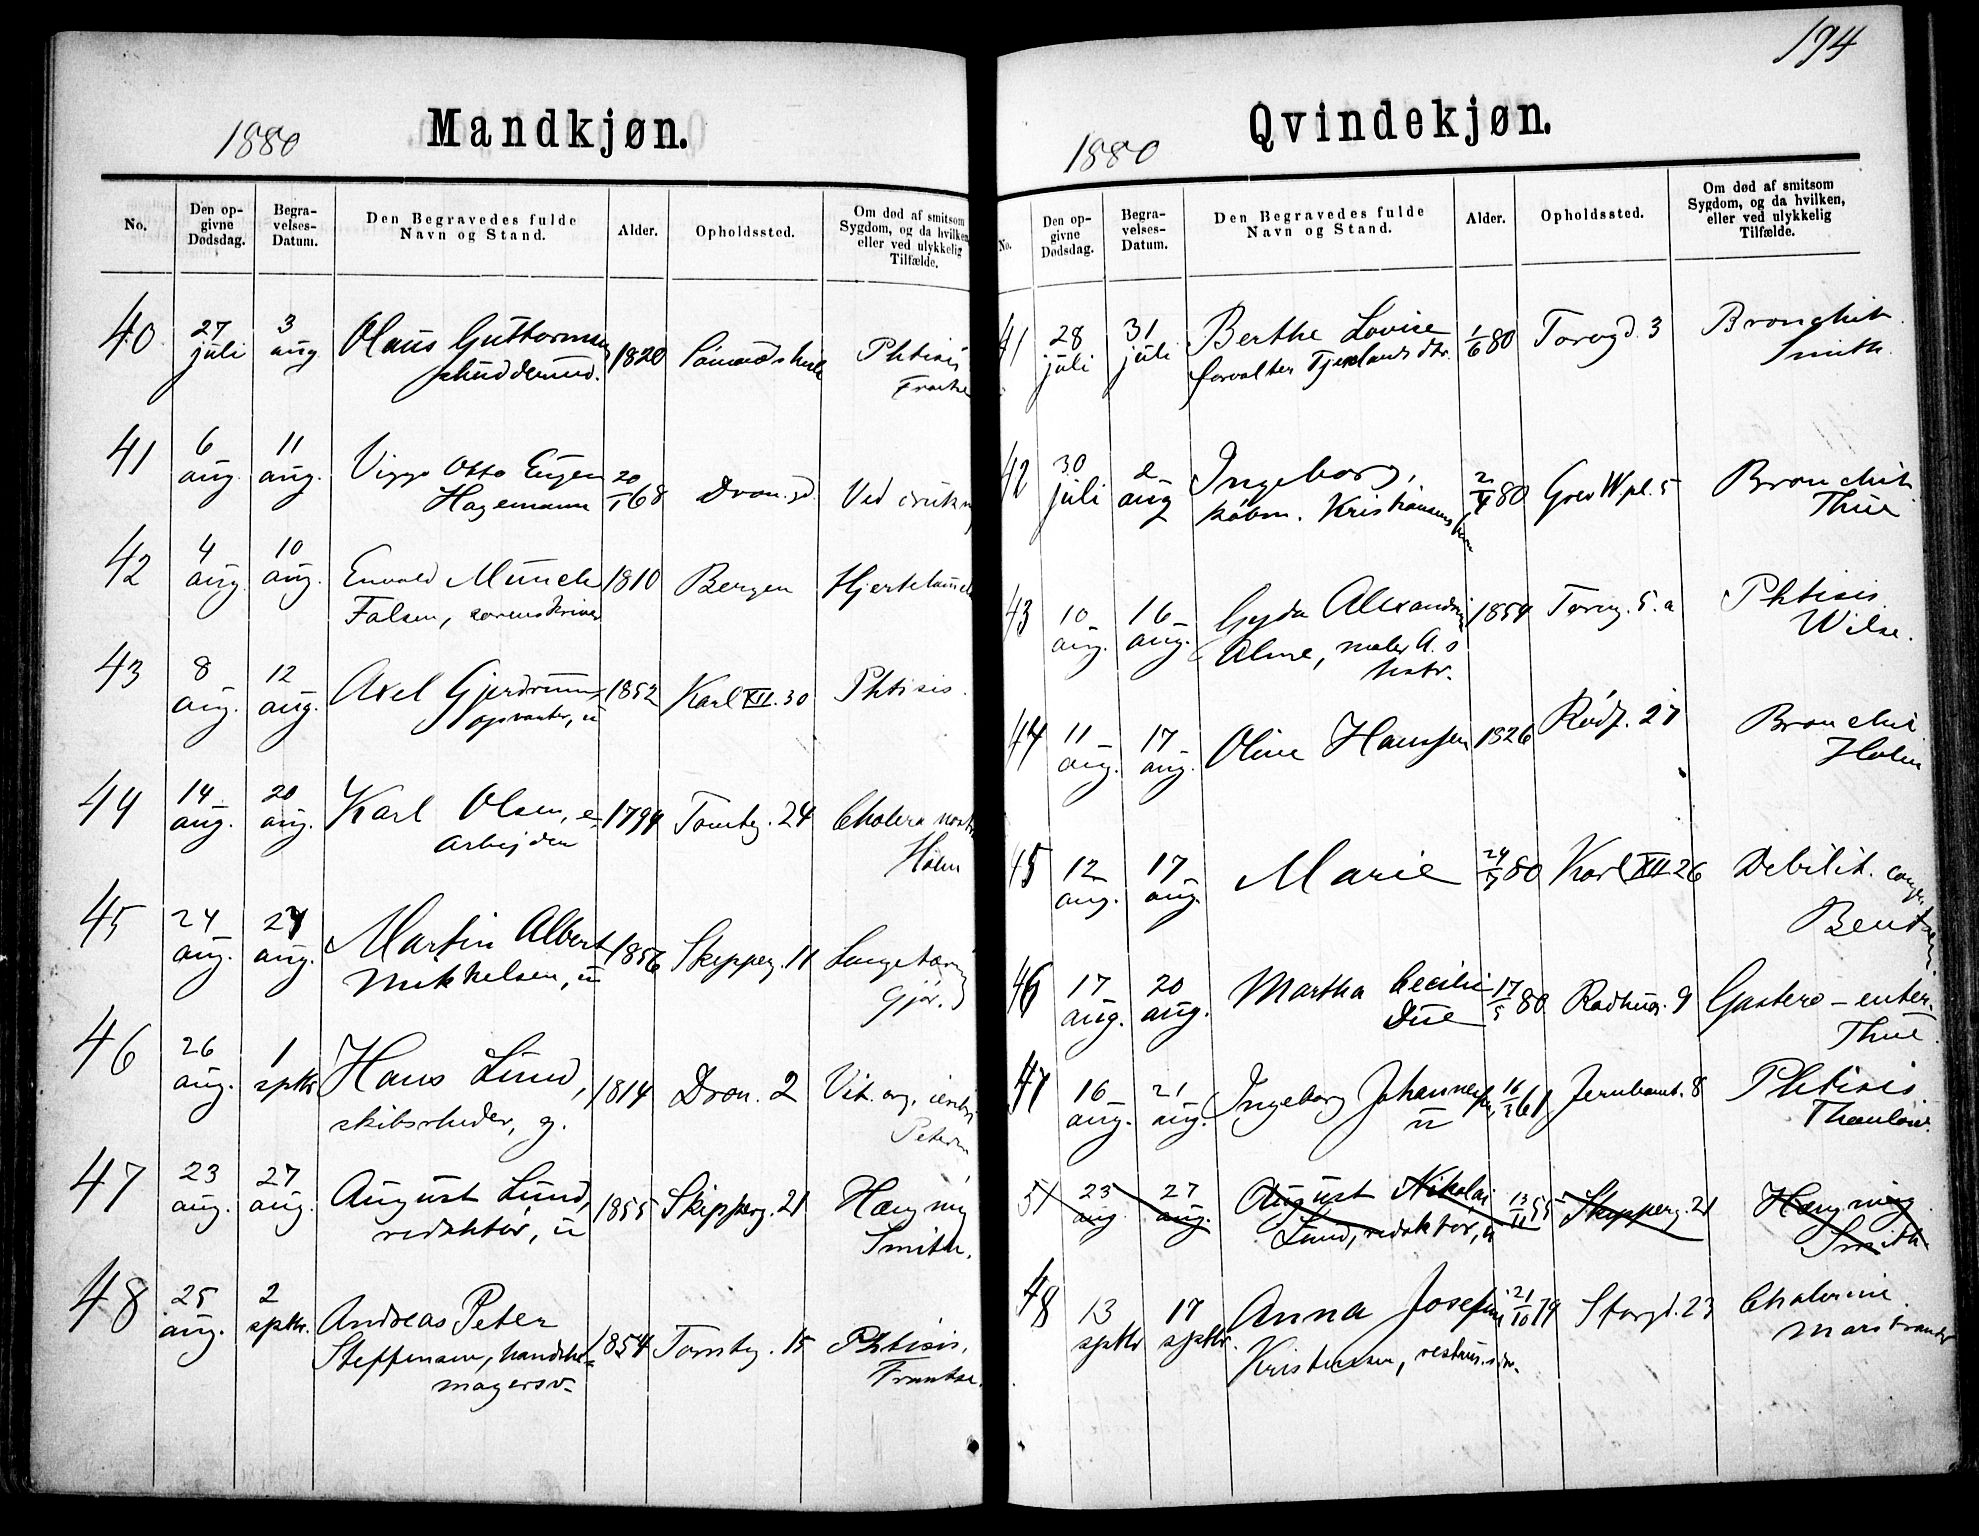 194
1880 Mandkjøn.
No. Den opgivne Dødsdag. Begravelses-Datum. Den Begravedes fulde Navn og Stand. Alder. Opholdssted. Om død af smitsom Sygdom, og da hvilken, eller ved ulykkelig Tilfælde.
40 27 juli 3 aug Olaus Guttormsen 1820 Phtisis
41 6 aug. 11 aug. Viggo Otto Eugen Hagemann 20/1 68 Dron.gd. Ved
42 4 aug 10 aug. Envold Munch 1810 Bergen
Falsen, sorenskriver
43 8 aug. 12 aug. Axel Gjerdrum 1852 Karl XII. 30 Phtisis.
opvarter, u
44 14 aug. 20 aug. Karl Olsen, e. 1794 Tomteg. 24 Cholera nostr
arbejder Holm
45 24 aug. 27 aug. Martin Albert 1856 Skipperg. 11 Lungetæring
Mikkelsen, u Gjør.
46 26 aug. 1 sptbr Hans Lund, 1814 Dron. 2 Vit. org.
skibsrheder, g.
47 23 aug. 27 aug. August Lund, 1855 Skipperg. 21 Hængning
redaktør, u Smith.
48 25 aug. 2 sptbr. Andreas Peter 1854 Tomteg. 15 Phtisis.
Steffensen, handskemagersv. Frantze.
1880 Qvindekjøn.
No. Den opgivne Dødsdag. Begravelses-Datum. Den Begravedes fulde Navn og Stand. Alder. Opholdssted. Om død af smitsom Sygdom, og da hvilken, eller ved ulykkelig Tilfælde.
41 28 juli 31 juli Berthe Lovise 1/6 80 Torvgd. 3 Bronchit.
forvalter dtr. Smith.
42 30 juli 2 aug Ingeborg, 2/4 80 Grev W.pl. 5 Bronchit.
købm. Kristiansens Thue
43 10 aug. 16 aug. Gyda Alexandrine 1854 Torvg. 5.a Phtisis.
Alme, maler A.s hstr. Wilse.
44 11 aug. 17 aug. Oline Hanssen 1826 Rødf. 27 Bronchit
Holm
45 12 aug. 17 aug. Marie 24/7 80 Karl XII 26 Debilit. cong.
Bentzen.
46 17 aug. 20 aug. Martha Cecilie 17/5 80 Radhusg. 9 Gastero-enter.
Due Thue.
47 16 aug. 21 aug. Ingeborg Johannesen 61 Jernbanet. 8 Phtisis
u Thaulow.
51 23 aug. 27 aug. August Nikolai 13/11 55 Skipperg. 21 Hængning
Lund, redaktør, u Smith
48 13 sptbr 17 sptbr. Anna Josefine 21/10 79 Storgd. 23 Cholerine.
Kristensen, Marstrander